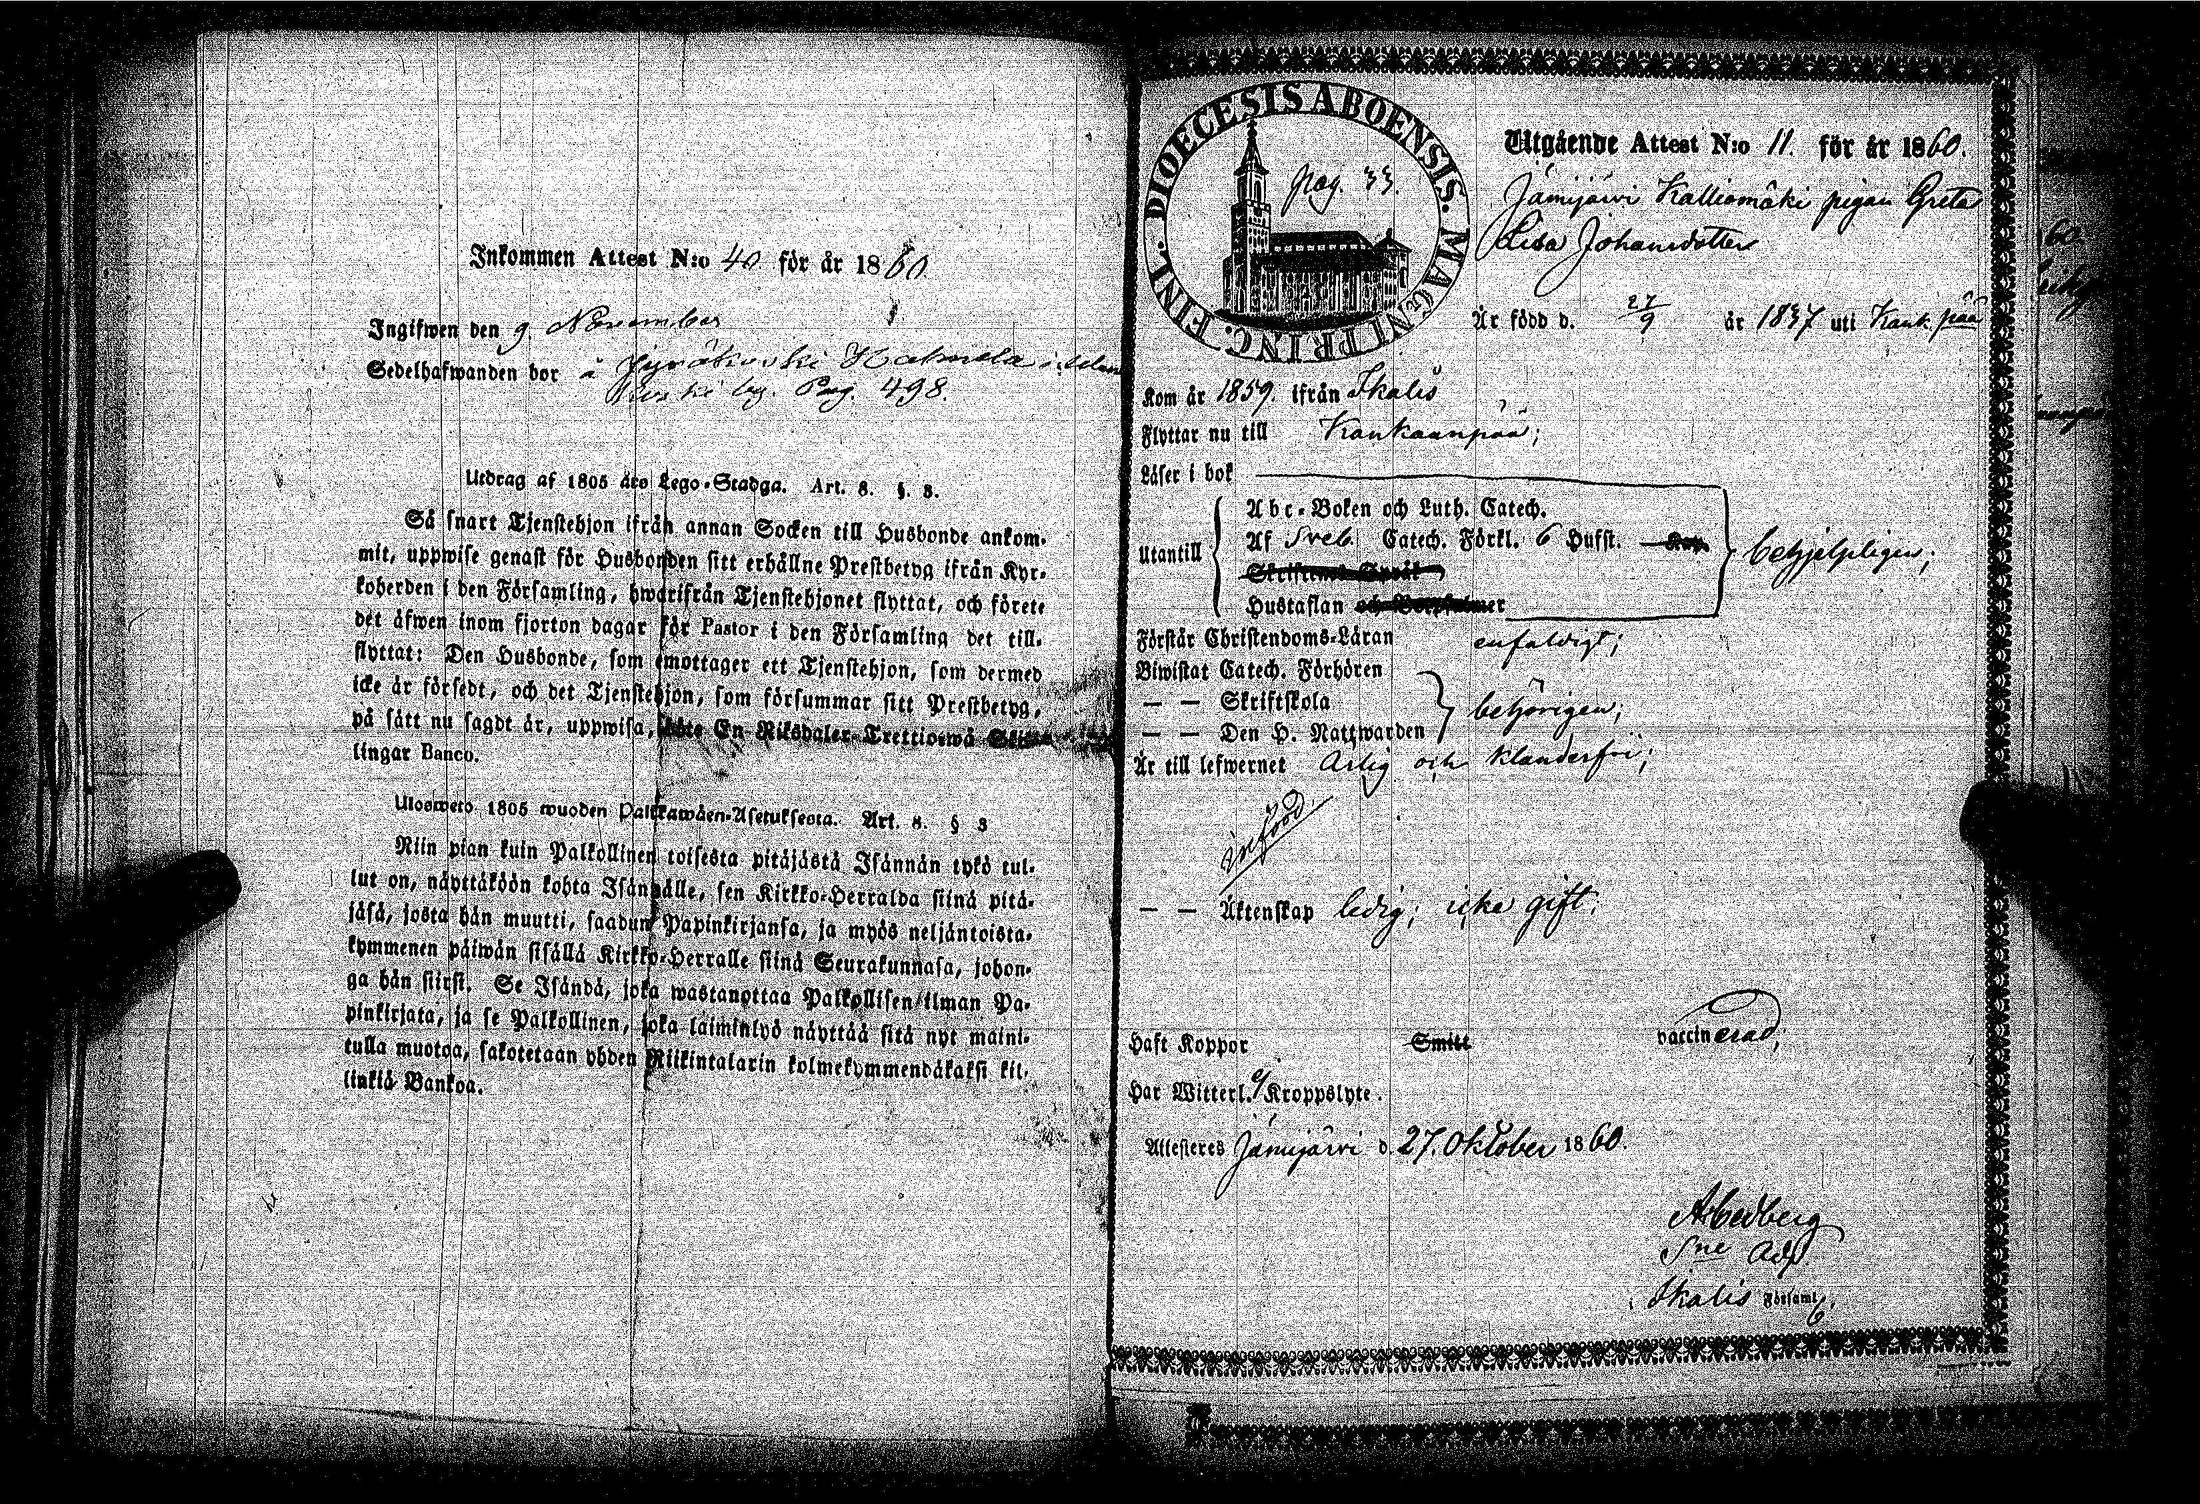 Inkommen Attest N:o 40 för år 1860
Ingifwen den 9. November
Sedelhafwanden bor å
by. Pag. 498.
Utdrag af 1805 års Lego-Stadga. Art. 8. §. 3.
Så snart Tjenstehjon ifrån annan Socken till Husbonde ankom-
mit, uppwise genast för Husbonden sitt erhållne Prestbetyg ifrån Kyr-
koherden i den Församling, hwarifrån Tjenstehjonet flyttat, och förete
det äfwen inom fjorton dagar för Pastor i den Församling det till-
flyttat: Den Husbonde, som emottager ett Tjenstehjon, som dermed
icke är försedt, och det Tjenstehjon, som försummar sitt Prestbetyg,
på sått nu sagdt är, uppwisa, böte En Riksdaler Trettiotwå Skil-
lingar Banco.
Ulosweto 1805 wuoden Palkkawäen-Asetuksesta. Art. 8. § 3
Niin pian kuin Palkollinen toisesta pitäjästä Isännän tykö tul-
lut on, näyttäköön kohta Isännälle, sen Kirkko-Herralda siinä pitä-
jäsä, josta hän muutti, saadun Papinkirjansa, ja myös neljäntoista-
kymmenen päiwän sisällä Kirkko-Herralle siinä Seurakunnasa, johon-
ga hän siirsi. Se Isändä, joka wastanottaa Palkollisen ilman Pa-
pinkirjata, ja se Palkollinen, joka laiminlyö näyttää sitä nyt maini-
tulla muotoa, sakotetaan yhden Riikintalarin kolmekymmendäkaksi kil-
linkiä Bankoa.
DIOECESIS ABOENSIS. MAGNI PRINC. FINL.
pag. 33.
Utgående Attest N:o 11. för år 1860.
Jämijärvi Kalliomäki pigan Greta
Lisa Johansdotter
Är född d. 27/9 år 1837 uti Kankpää
Kom år 1859. ifrån Ikalis
Flyttar nu till Kankaanpää;
Läser i bok
Utantill
Abc-Boken och Luth. Catech.
Af Sveb. Catech. Förkl. 6 Hufst.
Skriftenes Språk
Hustaflan och Botpsalmer
behjelpligen;
Förstår Christendoms-Läran enfaldigt;
Biwistat Catech. Förhören
— — Skriftskola
— — Den H. Nattwarden
behörigen;
Är till lefwernet Ärlig och klanderfri;
införd
— — Äktenskap ledig; icke gift;
Haft Koppor Smitt vaccinerad;
Har Witterl. ej Kroppslyte.
Attesteres Jämijärvi d. 27. Oktober 1860.
Sne Adj.
Ikalis Församl.